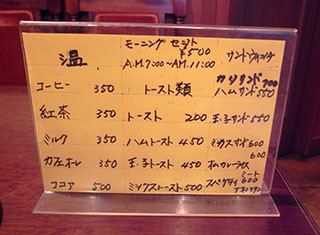 モーニングセット
¥500
温
A.M.7:00~A.M.11:00
サンドウィッチ
カツサンド 700
コーヒー 350
トースト類
ハムサンド 550
紅茶 350
トースト 200
玉子サンド 550
ミルク 350
ハムトースト 450
ミックスサンド 600
カフェオーレ 350
玉子トースト 450
オムカレーライス
600
ココア 500
ミックストースト 500
スパゲティ
ミート
600
ナポリタン